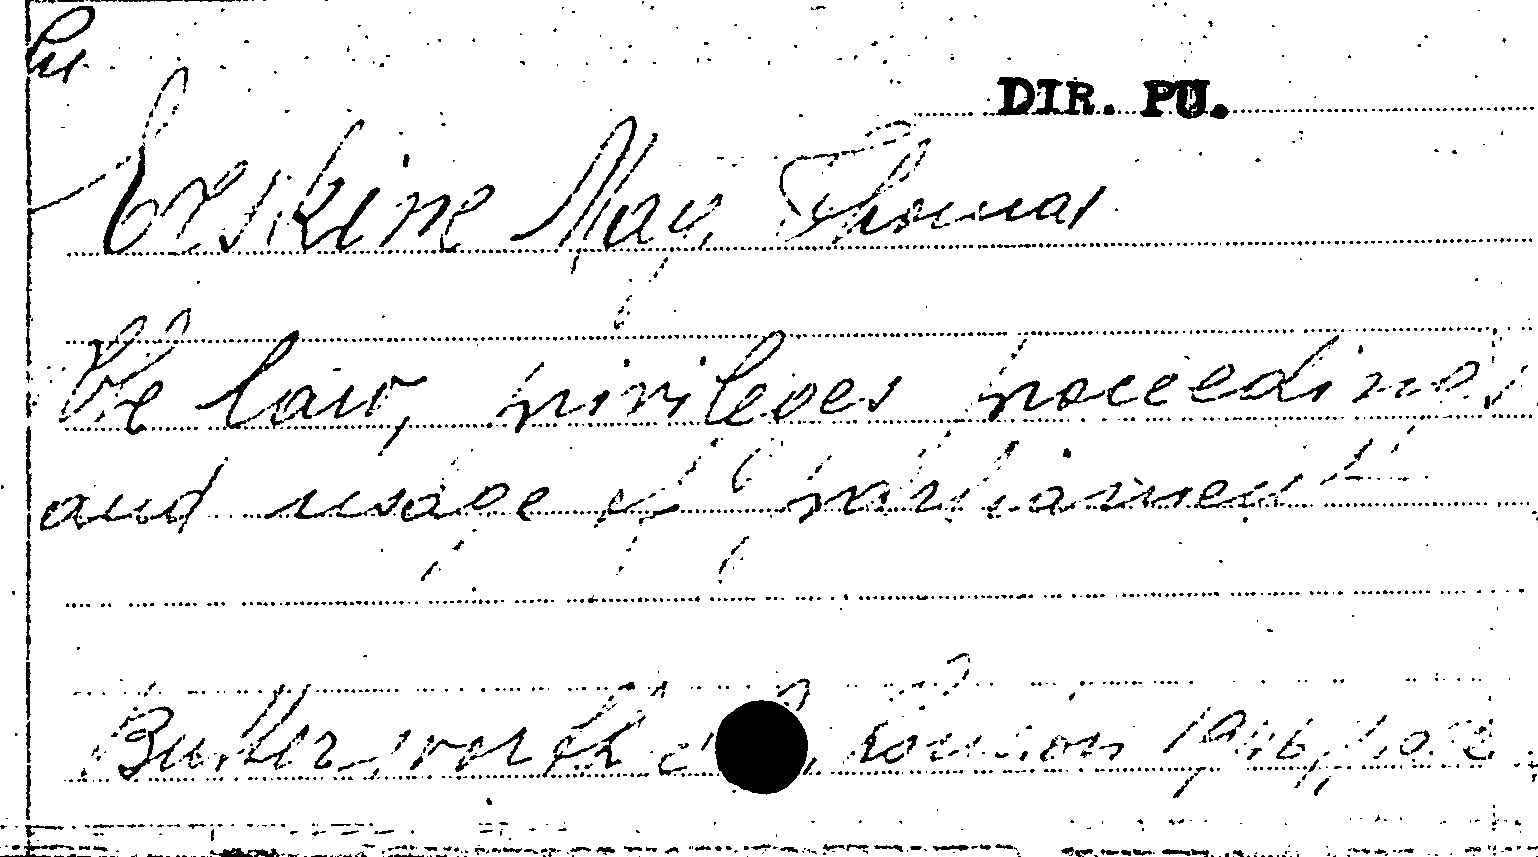 DIR. PU.
Erskine May, Thomas
The law, privileges proceedings
and usage of parliament
Butterworth &, London 1946,